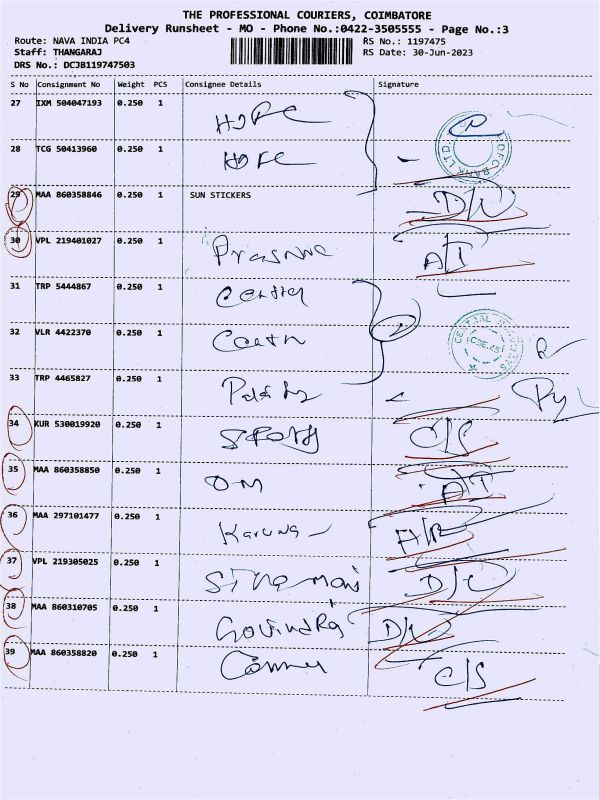 THE PROFESSIONAL COURIERS, COIMBATORE
Delivery Runsheet - MO - Phone No.:0422-3505555 - Page No.:3
Route: NAVA INDIA PC4 RS No.: 1197475
Staff: THANGARAJ RS Date: 30-Jun-2023
DRS No.: DCJB119747503
S No Consignment No Weight PCS Consignee Details Signature
27 IXM 504047193 0.250 1 HDFC
28 TCG 50413960 0.250 1 HDFC
29 MAA 860358846 0.250 1 SUN STICKERS D/L
30 VPL 219401027 0.250 1
31 TRP 5444867 0.250 1
32 VLR 4422370 0.250 1
33 TRP 4465827 0.250 1
34 KUR 530019920 0.250 1 C/S
35 MAA 860358850 0.250 1 OM
36 MAA 297101477 0.250 1 Karuna
37 VPL 219305025 0.250 1 D/L
38 MAA 860310705 0.250 1 Govindraj D/L
39 MAA 860358820 0.250 1 C/S